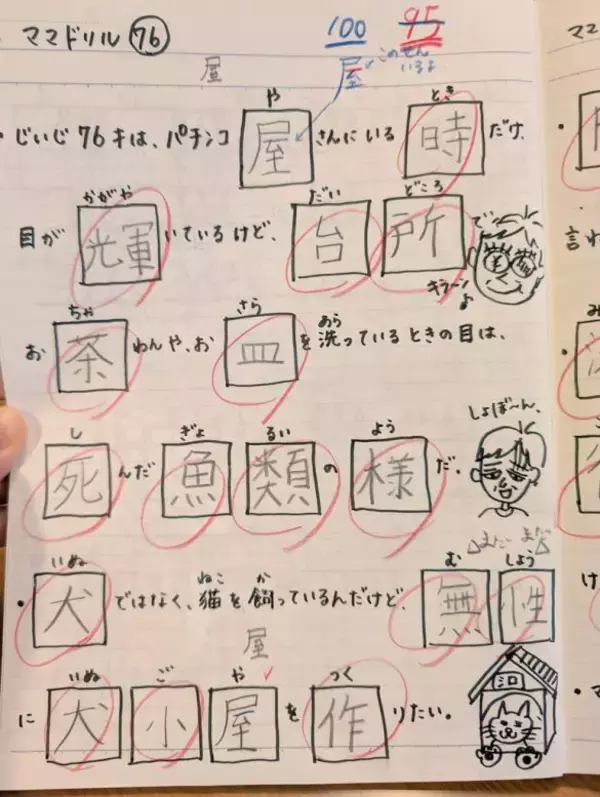 ママドリル 76 100 95
屋 屋 このせん
いるよ
や とき
・じいじ76才は、パチンコ屋さんにいる時だけ、
かがや だい どころ
目が輝いているけど、台所で
キラーン
ちゃ さら あら
お茶わんや、お皿を洗っているときの目は、
しょぼ〜ん、
し ぎょ るい よう
死んだ魚類の様だ。
まだ まだ
いぬ ねこ か む しょう
・犬ではなく、猫を飼っているんだけど、無性
屋
いぬ ご や つく
に犬小屋を作りたい。
ママ
言わ
み
け